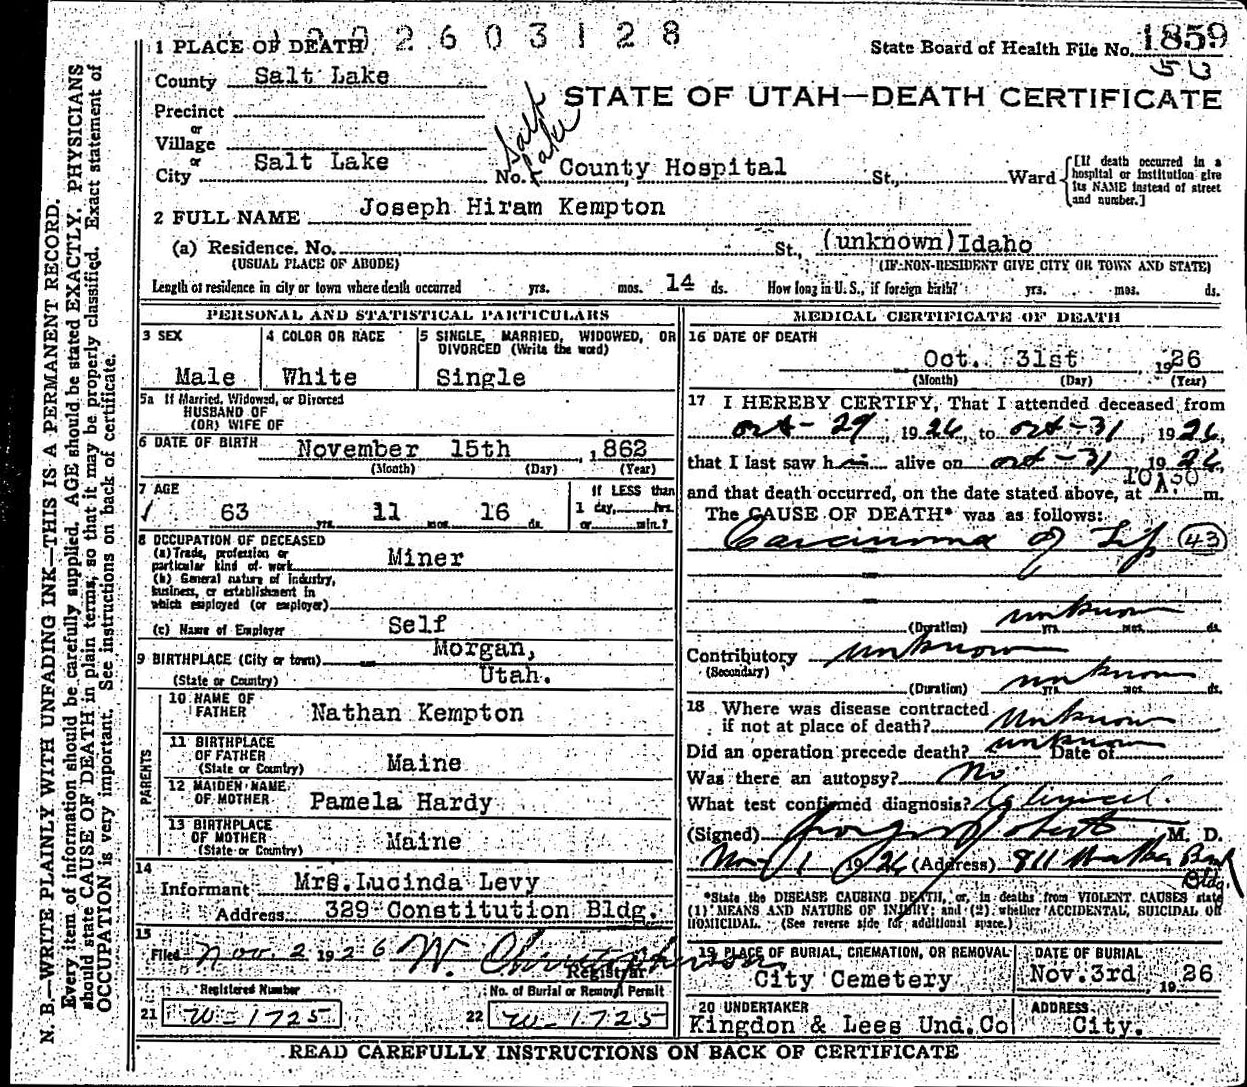 1002603128
State Board of Health File No. 1859
513
1 PLACE OF DEATH
County Salt Lake
STATE OF UTAH—DEATH CERTIFICATE
Precinct
or
Village
or
City Salt Lake No. Salt Lake County Hospital St., Ward
[If death occurred in a hospital or institution give its NAME instead of street and number.]
2 FULL NAME Joseph Hiram Kempton
(a) Residence. No. St., (unknown) Idaho
(USUAL PLACE OF ABODE) (IF NON-RESIDENT GIVE CITY OR TOWN AND STATE)
Length of residence in city or town where death occurred yrs. mos. 14 ds. How long in U. S., if foreign birth? yrs. mos. ds.
PERSONAL AND STATISTICAL PARTICULARS
3 SEX
Male
4 COLOR OR RACE
White
5 SINGLE, MARRIED, WIDOWED, OR DIVORCED (Write the word)
Single
5a If Married, Widowed, or Divorced
HUSBAND OF
(OR) WIFE OF
6 DATE OF BIRTH November 15th, 1862
(Month) (Day) (Year)
7 AGE
63 yrs. 11 mos. 16 ds.
If LESS than
1 day, hrs.
or min.?
8 OCCUPATION OF DECEASED
(a) Trade, profession or
particular kind of work Miner
(b) General nature of industry,
business, or establishment in
which employed (or employer)
(c) Name of Employer Self
9 BIRTHPLACE (City or town) Morgan,
(State or Country) Utah.
PARENTS
10 NAME OF
FATHER Nathan Kempton
11 BIRTHPLACE
OF FATHER
(State or Country) Maine
12 MAIDEN NAME
OF MOTHER Pamela Hardy
13 BIRTHPLACE
OF MOTHER
(State or Country) Maine
14
Informant Mrs. Lucinda Levy
Address 329 Constitution Bldg.
15
Filed Nov. 2 1926 W. Christopherson
Registrar
Registered Number
21 W-1725
No. of Burial or Removal Permit
22 W-1725
MEDICAL CERTIFICATE OF DEATH
16 DATE OF DEATH
Oct. 31st, 1926
(Month) (Day) (Year)
17 I HEREBY CERTIFY, That I attended deceased from
Oct-29, 1926, to Oct-31, 1926,
that I last saw him alive on Oct-31, 1926,
and that death occurred, on the date stated above, at 10:30 A. m.
The CAUSE OF DEATH* was as follows:
Carcinoma of Lip (43)
(Duration) unknown yrs. mos. ds.
Contributory unknown
(Secondary)
(Duration) unknown yrs. mos. ds.
18 Where was disease contracted
if not at place of death? Unknown
Did an operation precede death? unknown Date of
Was there an autopsy? No
What test confirmed diagnosis? Clinical.
(Signed) M. D.
Nov 1 1926 (Address) 811 Walker Bank
Bldg
*State the DISEASE CAUSING DEATH, or, in deaths from VIOLENT CAUSES state
(1) MEANS AND NATURE OF INJURY; and (2) whether ACCIDENTAL, SUICIDAL OR
HOMICIDAL. (See reverse side for additional space.)
19 PLACE OF BURIAL, CREMATION, OR REMOVAL
City Cemetery
DATE OF BURIAL
Nov. 3rd 1926
20 UNDERTAKER
Kingdon & Lees Und. Co
ADDRESS
City.
READ CAREFULLY INSTRUCTIONS ON BACK OF CERTIFICATE
N. B.—WRITE PLAINLY WITH UNFADING INK—THIS IS A PERMANENT RECORD.
Every item of information should be carefully supplied. AGE should be stated EXACTLY. PHYSICIANS
should state CAUSE OF DEATH in plain terms, so that it may be properly classified. Exact statement of
OCCUPATION is very important. See instructions on back of certificate.